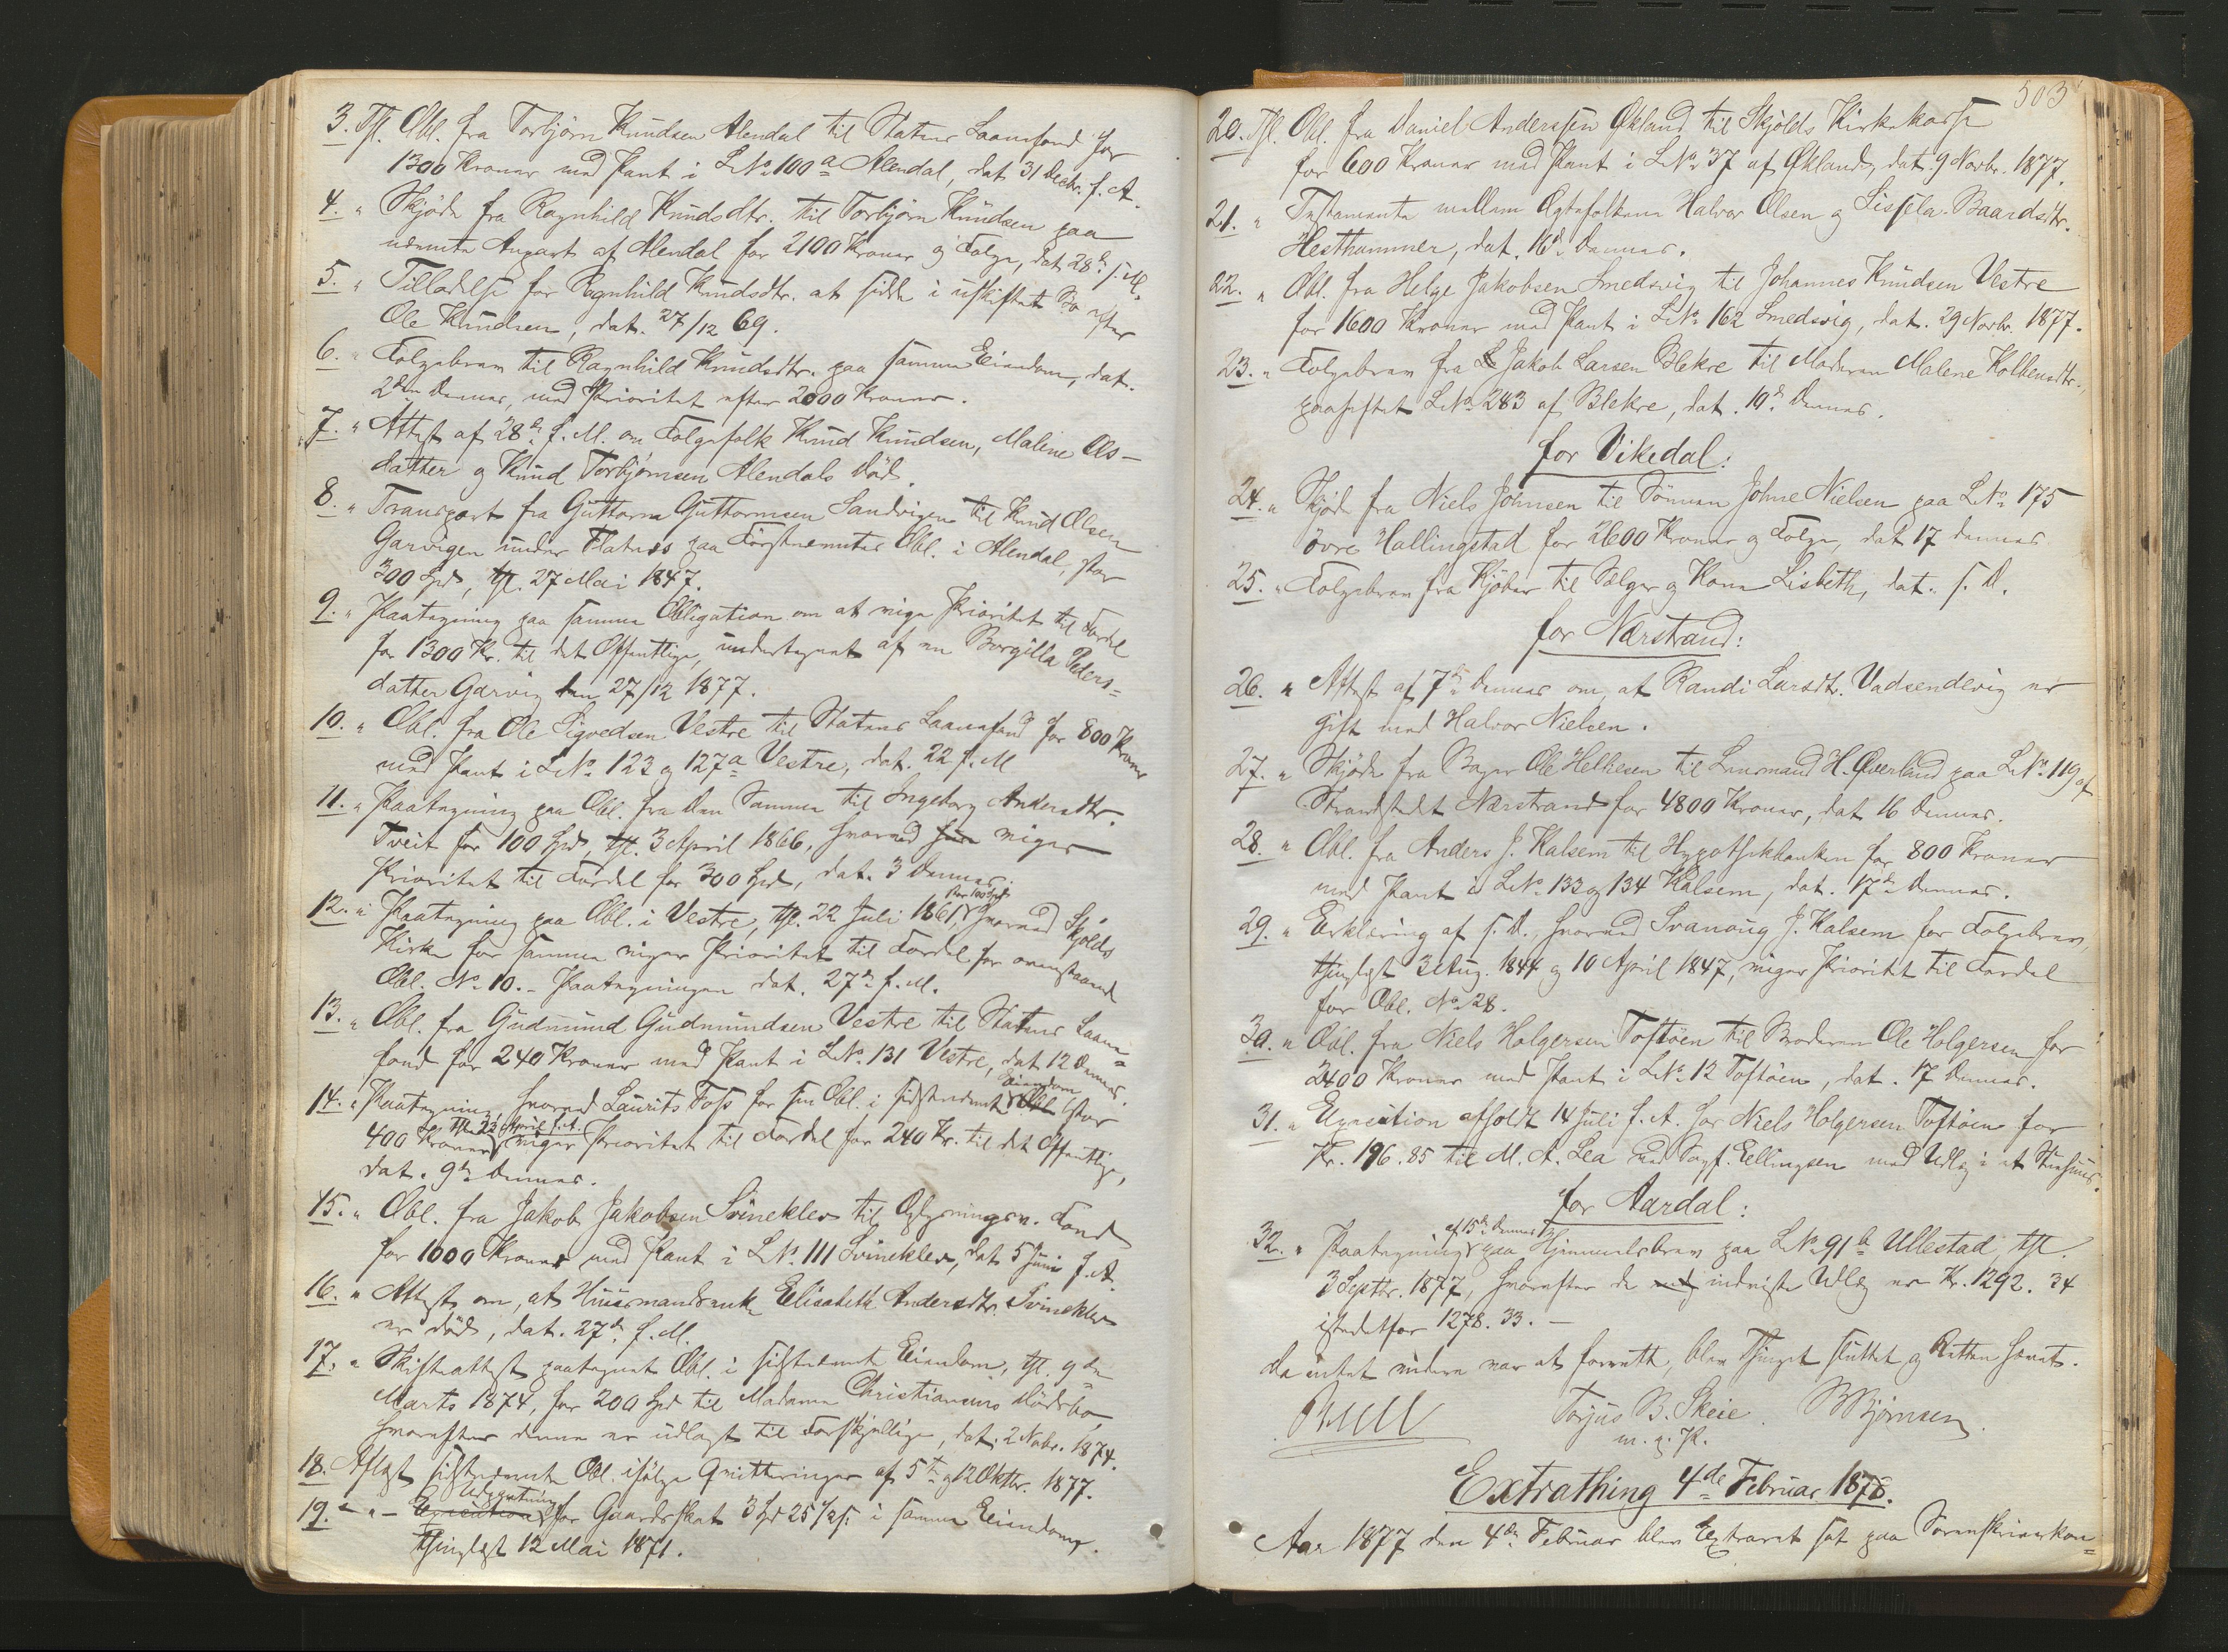 3. Tgl. Obl. fra Torbjørn Knudsen Alendal til Statens Laanefond for
1300 Kroner med Pant i L.No 100a Alendal, dat 31 Decbr. f. A.
4. " Skjøde fra Ragnhild Knudsdtr. til Torbjørn Knudsen paa
nævnte Anpart af Alendal for 2100 Kroner og Folge, dat 28de f. M.
5. " Tilladelse for Ragnhild Knudsdtr. at sidde i uskiftet Bo efter
Ole Knudsen, dat. 27/12 69.
6. " Folgebrev til Ragnhild Knudsdtr. paa samme Eiendom, dat.
2den dennes, med Prioritet efter 2000 Kroner.
7. " Attest af 28de f. M. om Folgefolk Knud Knudsen, Malene Ols-
datter og Knud Torbjørnsen Alendals Død.
8. " Transport fra Guttorm Guttormsen Sandvigen til Knud Olsen
Garvigen under Flatnes paa Førstnævntes Obl. i Alendal, stor
300 Spd, tgl. 27 Mai 1847.
9. " Paategning paa samme Obligation om at vige Prioritet til Fordel
for 1300 Kr. til det Offentlige, undertegnet af en Borgilla Peders-
datter Garvig den 27/12 1877.
10. " Obl. fra Ole Sigvedsen Vestre til Statens Laanefond for 800 Kroner
med Pant i L.No 123 og 127a Vestre, dat. 22 f. M
11. " Paategning paa Obl. fra den Samme til Ingeborg Andersdtr.
Tveit for 100 Spd, tgl. 3 April 1866, hvorved hun viger
Prioritet til Fordel for 300 Spd, dat. 3 dennes.
12. " Paategning paa Obl. i Vestre, tgl. 22 Juli 1861, stor 100 Spd, hvorved Skjolds
Kirke for samme viger Prioritet til Fordel for ovenstaaende
Obl. No 10. - Paategningen dat. 27de f. M.
13. " Obl. fra Gudmund Gudmundsen Vestre til Statens Laane-
fond for 240 Kroner med Pant i L.No. 131 Vestre, dat 12 dennes.
14. " Paategning, hvorved Laurits Foss for sin Obl. i sidstnævnte Eiendom (stor
400 Kroner, tgl. 23 April f. A.) viger Prioritet til Fordel for 240 Kr. til det Offentlige,
dat. 9de dennes.
15. " Obl. fra Jakob Jakobsen Svineklev til Oplysningsv. Fond
for 1000 Kroner med Pant i L.No. 111 Svineklev, dat 5 Juni f. A.
16. " Attest om, at Huusmandsenke Elisabeth Andersdtr. Svineklev
er død, dat. 27de f. M.
17. " Skifteattest paategnet Obl. i sidstnævnte Eiendom, tgl. 9de
Marts 1874, for 200 Spd til Madame Christiansens Dødsbo,
hvorefter denne er udlagt til Forskjellige, dat. 2 Novbr. 1874.
18. Aflæst sidstnævnte Obl. ifølge Qvitteringer af 5te og 12 Oktbr. 1877.
19. " - Execution Udpantning for Gaardsskat 3 Spd 25 1/2 ß i samme Eiendom,
thinglæst 12 Mai 1871.
503
20. Tgl. Obl. fra Daniel Anderssen Økland til Skjolds Kirkekasse
for 600 Kroner med Pant i L.No. 37 af Økland, dat. 9 Novbr. 1877.
21. " Testamente mellem Ægtefolkene Halvor Olsen og Sissela Baardsdtr.
Hesthammer, dat. 16de dennes.
22. " Obl. fra Helge Jakobsen Smedsvig til Johannes Knudsen Vestre
for 1600 Kroner med Pant i L.No 162 Smedsvig, dat. 29 Novbr. 1877.
23. " Folgebrev fra L Jakob Larsen Blekre til Moderen Malene Kolbensdtr.,
paaheftet L.No. 283 af Blekre, dat. 19de dennes.
for Vikedal:
24. " Skjøde fra Niels Johnsen til Sønnen Johne Nielsen paa L.No. 175
øvre Hallingstad for 2600 Kroner og Folge, dat 17 dennes
25. " Folgebrev fra Kjøber til Sælger og Kone Lisbeth, dat. s. D.
for Nærstrand:
26. " Attest af 7de dennes om, at Randi Larsdtr. Vadsendevig er
gift med Halvor Nielsen.
27. " Skjøde fra Bager Ole Helkesen til Lensmand H. Qverland paa L.No. 119 af
Strandstedet Nærstrand for 4800 Kroner, dat 16 dennes.
28. " Obl. fra Anders J. Kalsem til Hypothekbanken for 800 Kroner
med Pant i L.No. 133 og 134 Kalsem, dat. 17de dennes.
29. " Erklæring af s. D., hvorved Svanaug J. Kalsem for Folgebrev,
thinglæst 3 Aug. 1844 og 10 April 1847, viger Prioritet til Fordel
for Obl. No 28.
30. " Obl. fra Niels Holgersen Toftøen til Broderen Ole Holgersen for
2400 Kroner med Pant i L.No. 12 Toftøen, dat. 17 dennes.
31. " Execution afholdt 14 Juli f. A. hos Niels Holgersen Toftøen for
Kr. 196.85 til M. A. Lea ved Sagf. Ellingsen med Udlæg i et Stuehuus.
for Aardal:
32. " Paategning af 15de dennes paa Hjemmelsbrev paa L.No. 91b Ullestad, tgl.
3 Septbr. 1877, hvorefter de indviste Udlæg er Kr. 1292.34
istedetfor 1278.33. -
Da intet videre var at forrette, blev Thinget sluttet og Retten hævet.
Torjus B. Skeie. BBjørnsen
m. p. P.
Extrathing 4de Februar 1878.
Aar 1877 den 4de Februar blev Extraret sat paa Sorenskriverkon-